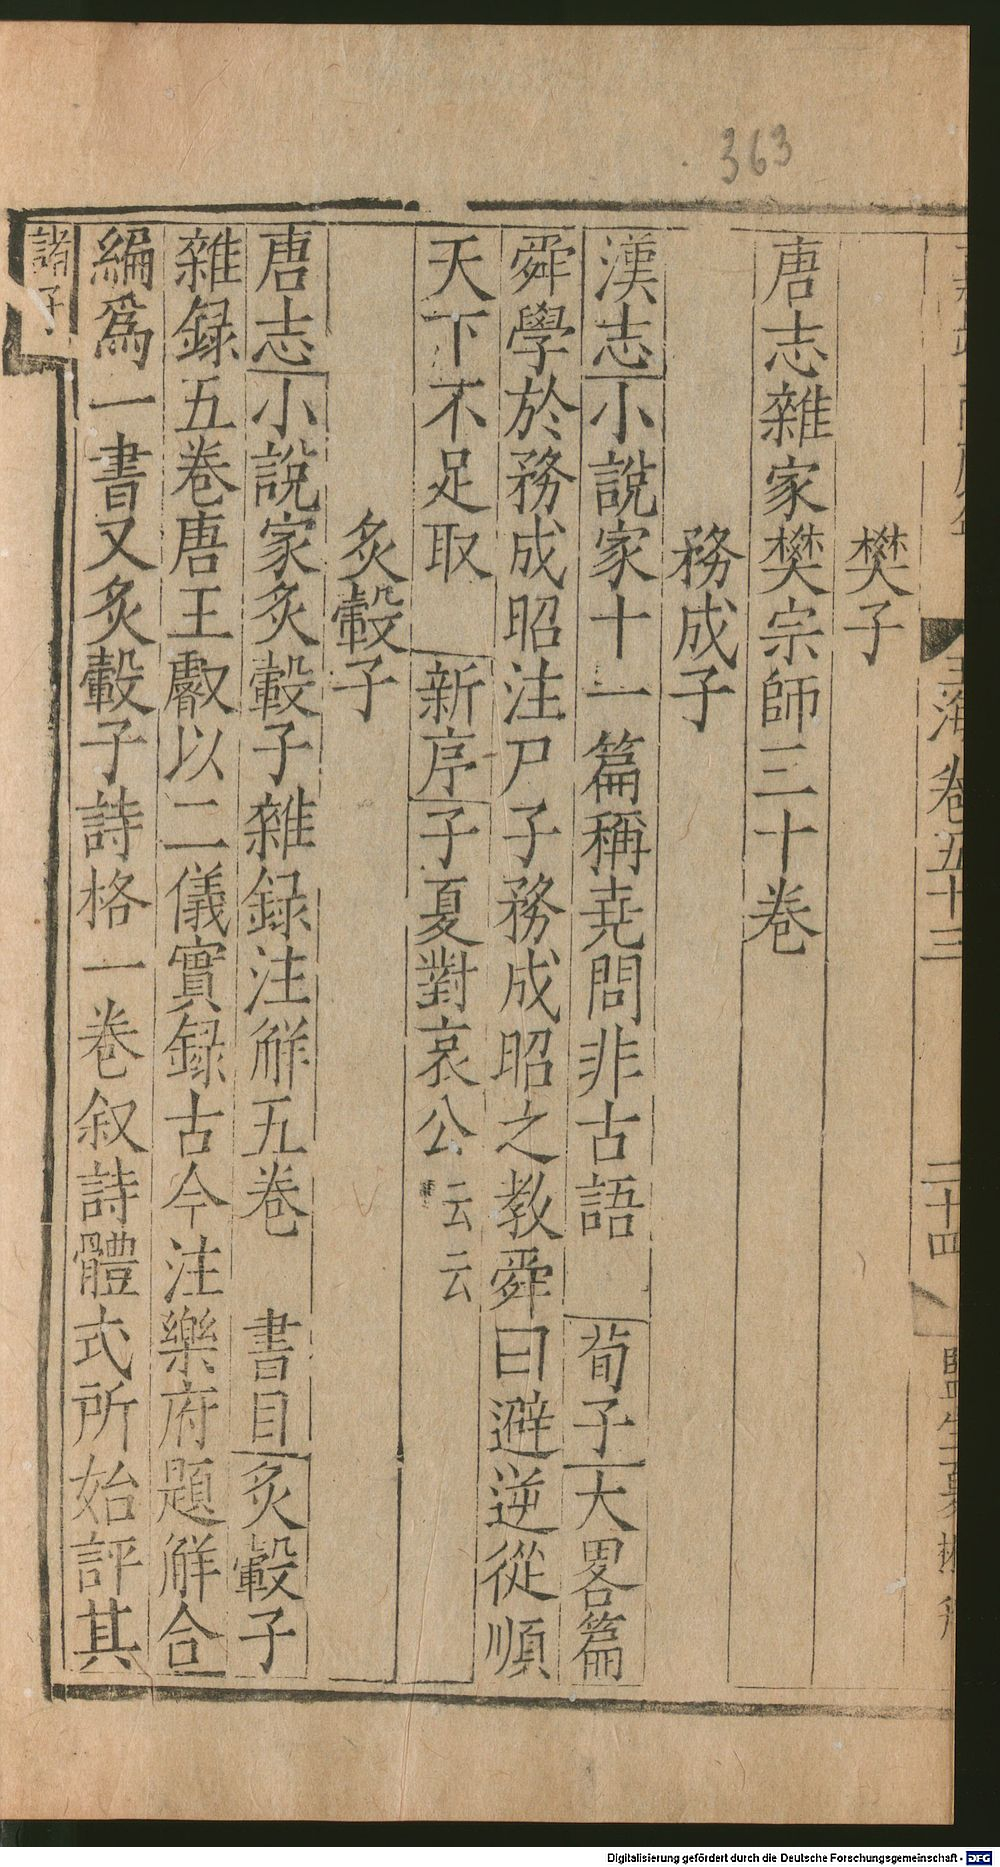 363
玉海卷五十三
二十四
樊子
唐志雜家樊宗師三十卷
務成子
漢志小說家十一篇稱堯問非古語 荀子大畧篇
舜學於務成昭注尸子務成昭之教舜曰避逆從順
天下不足取 新序子夏對哀公云云
炙轂子
唐志小說家炙轂子雜録注解五卷 書目炙轂子
雜録五卷唐王叡以二儀實録古今注樂府題解合
編爲一書又炙轂子詩格一卷叙詩體式所始評其
諸子
Digitalisierung gefördert durch die Deutsche Forschungsgemeinschaft - DFG